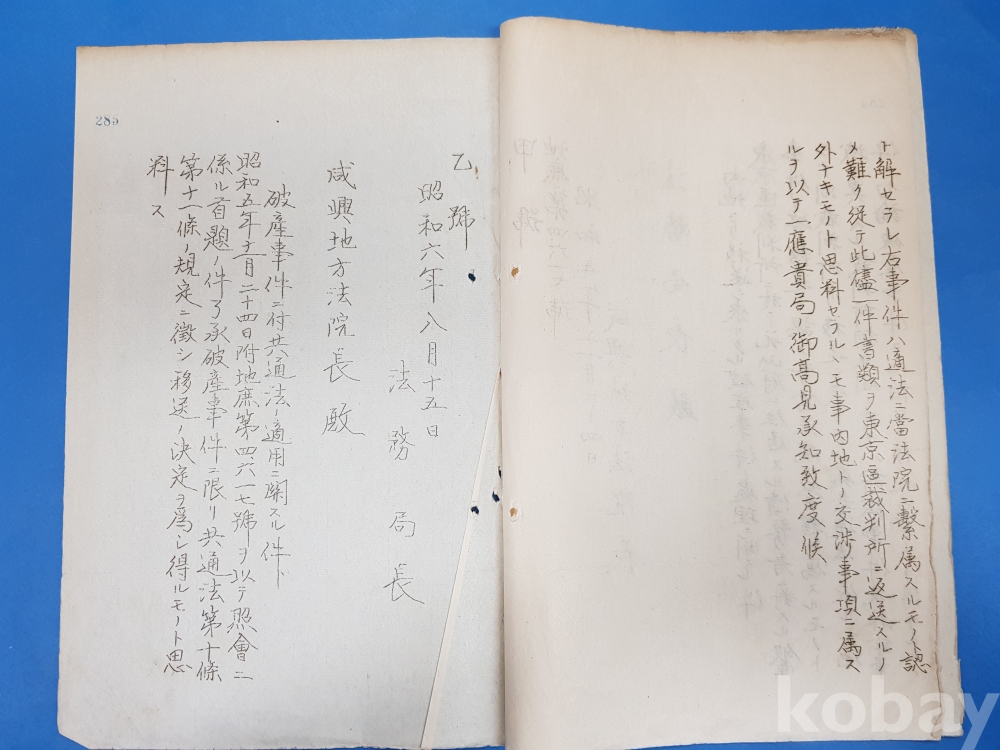 ト解セラレ右事件ハ適法ニ當法院ニ繋属スルモノト認
メ難ク従テ此儘一件書類ヲ東京區裁判所ニ返送スルノ
外ナキモノト思料セラルヽモ事内地トノ交渉事項ニ属ス
ルヲ以テ一應貴局ノ御高見承知致度候
乙號
昭和六年八月十五日
法務局長
咸興地方法院長殿
破産事件ニ付共通法ノ適用ニ関スル件
昭和五年十二月二十四日附地庶第四六一七號ヲ以テ照會ニ
係ル首題ノ件了承破産事件ニ限リ共通法第十條
第十一條ノ規定ニ徴シ移送ノ決定ヲ為シ得ルモノト思
料ス
289
kobay